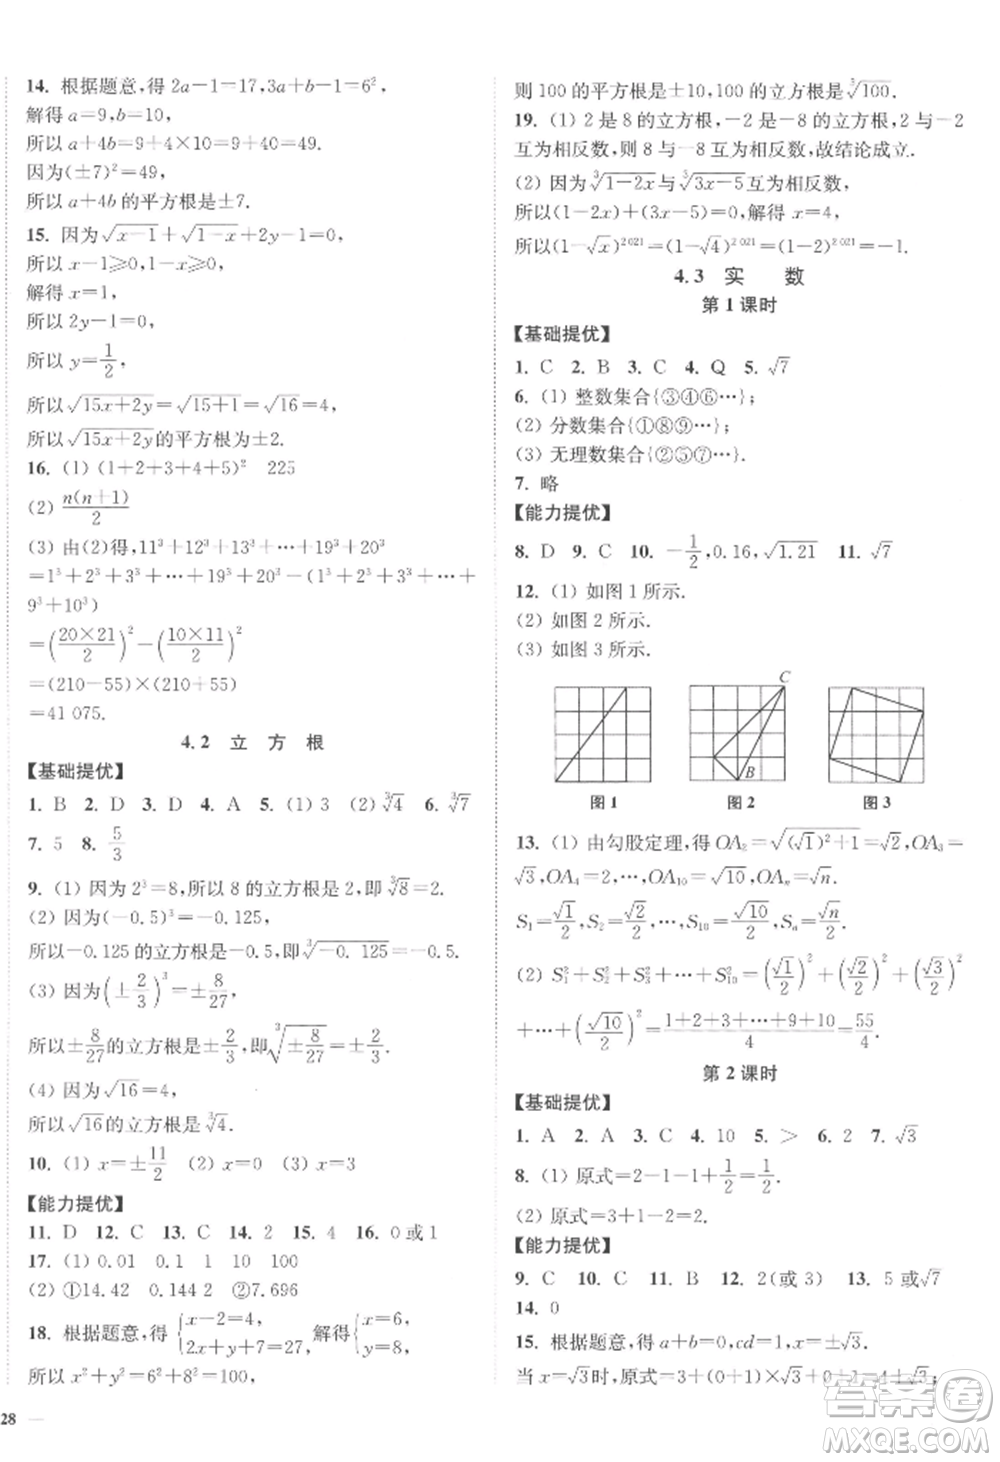 14. 根据题意,得 2a－1＝17,3a＋b－1＝6²,
解得 a＝9,b＝10,
所以 a＋4b＝9＋4×10＝49.
因为(±7)²＝49,
所以 a＋4b 的平方根是±7.
15. 因为√(x－1)＋√(1－x)＋2y－1＝0,
所以 x－1≥0,1－x≥0,
解得 x＝1,
所以 2y－1＝0,
所以 y＝1/2,
所以√(15x＋2y)＝√(15＋1)＝√16＝4,
所以√(15x＋2y)的平方根为±2.
16. (1) (1＋2＋3＋4＋5)² 225
(2) n(n＋1)/2
(3) 由(2)得,11³＋12³＋13³＋⋯＋19³＋20³
＝1³＋2³＋3³＋⋯＋19³＋20³－(1³＋2³＋3³＋⋯＋
9³＋10³)
＝(20×21/2)²－(10×11/2)²
＝(210－55)×(210＋55)
＝41 075.
4.2 立 方 根
【基础提优】
1. B 2. D 3. D 4. A 5. (1) 3 (2) ³√4 6. ³√7
7. 5 8. 5/3
9. (1) 因为 2³＝8,所以 8 的立方根是 2,即³√8＝2.
(2) 因为(－0.5)³＝－0.125,
所以－0.125 的立方根是－0.5,即³√(－0.125)＝－0.5.
(3) 因为(±2/3)³＝±8/27,
所以±8/27的立方根是±2/3,即³√(±8/27)＝±2/3.
(4) 因为√16＝4,
所以√16的立方根是³√4.
10. (1) x＝±11/2 (2) x＝0 (3) x＝3
【能力提优】
11. D 12. C 13. C 14. 2 15. 4 16. 0 或 1
17. (1) 0.01 0.1 1 10 100
(2) ①14.42 0.144 2 ②7.696
18. 根据题意,得 {x－2＝4, 2x＋y＋7＝27, 解得{x＝6, y＝8,
所以 x²＋y²＝6²＋8²＝100,
28
则 100 的平方根是±10,100 的立方根是³√100.
19. (1) 2 是 8 的立方根,－2 是－8 的立方根,2 与－2
互为相反数,则 8 与－8 互为相反数,故结论成立.
(2) 因为³√(1－2x)与³√(3x－5)互为相反数,
所以(1－2x)＋(3x－5)＝0,解得 x＝4,
所以(1－√x)²⁰²¹＝(1－√4)²⁰²¹＝(1－2)²⁰²¹＝－1.
4.3 实 数
第 1 课时
【基础提优】
1. C 2. B 3. C 4. Q 5. √7
6. (1) 整数集合{③④⑥⋯};
(2) 分数集合{①⑧⑨⋯};
(3) 无理数集合{②⑤⑦⋯}.
7. 略
【能力提优】
8. D 9. C 10. －1/2,0.16,√1.21 11. √7
12. (1) 如图 1 所示.
(2) 如图 2 所示.
(3) 如图 3 所示.
C
B
图 1 图 2 图 3
13. (1) 由勾股定理,得 OA₂＝√((√1)²＋1)＝√2,OA₃＝
√3,OA₄＝2,⋯,OA₁₀＝√10,OAₙ＝√n.
S₁＝√1/2,S₂＝√2/2,⋯,S₁₀＝√10/2,Sₙ＝√n/2.
(2) S₁²＋S₂²＋S₃²＋⋯＋S₁₀²＝(√1/2)²＋(√2/2)²＋(√3/2)²
＋⋯＋(√10/2)²＝(1＋2＋3＋⋯＋9＋10)/4＝55/4.
第 2 课时
【基础提优】
1. A 2. A 3. C 4. 10 5. ＞ 6. 2 7. √3
8. (1) 原式＝2－1－1＋1/2＝1/2.
(2) 原式＝3＋1－2＝2.
【能力提优】
9. C 10. C 11. B 12. 2(或 3) 13. 5 或√7
14. 0
15. 根据题意,得 a＋b＝0,cd＝1,x＝±√3.
当 x＝√3时,原式＝3＋(0＋1)×√3＋0＋1＝4＋√3;
答案圈
MXQE.COM